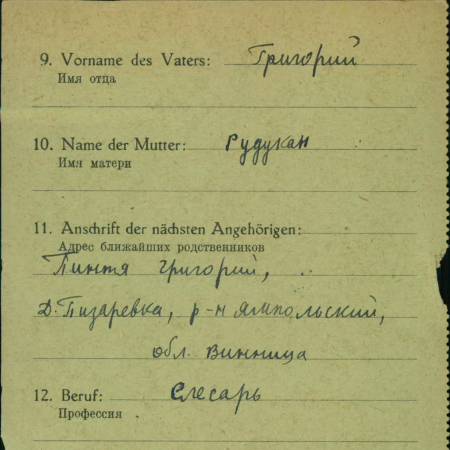 9. Vorname des Vaters: Григорий
Имя отца
10. Name der Mutter: Рудукан
Имя матери
11. Anschrift der nächsten Angehörigen:
Адрес ближайших родственников
Пинтя Григорий,
Д. Пизаревка, р-н Ямпольский,
обл. Винница
12. Beruf: Слесарь
Профессия